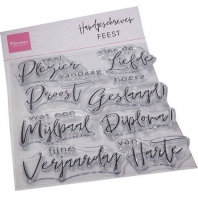 Handgeschreven
FEEST
veel vier de
Plezier Liefde
vandaag hoera
Proost Geslaagd!
wat een
Mijlpaal Diploma!
fijne van
Verjaardag Harte